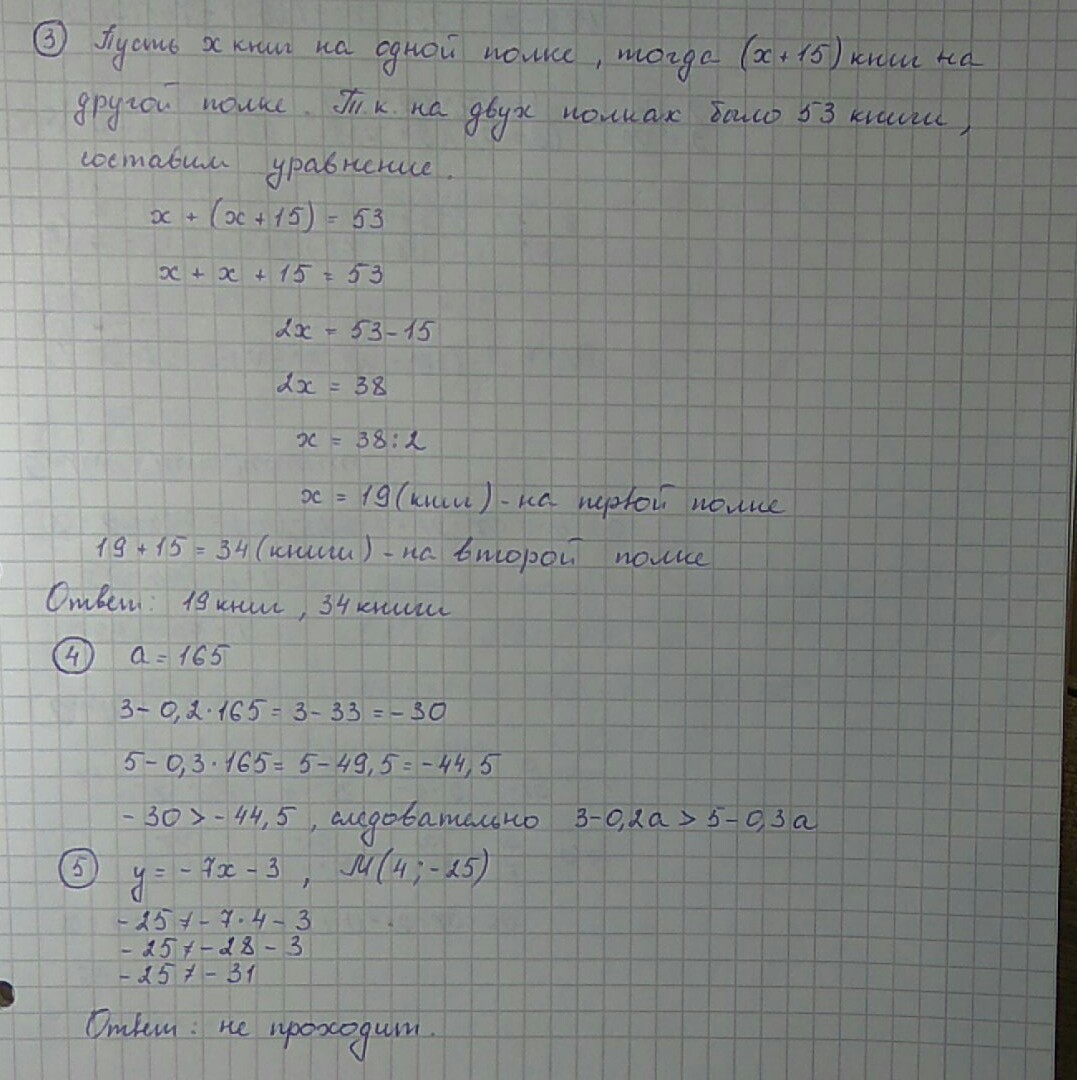 ③ Пусть x книг на одной полке, тогда (x+15) книг на
другой полке. Т.к. на двух полках было 53 книги,
составим уравнение.
x + (x+15) = 53
x + x + 15 = 53
2x = 53-15
2x = 38
x = 38:2
x = 19 (книг) - на первой полке
19+15 = 34 (книги) - на второй полке
Ответ: 19 книг, 34 книги
④ a = 165
3 - 0,2·165 = 3 - 33 = -30
5 - 0,3·165 = 5 - 49,5 = -44,5
-30 > -44,5, следовательно 3-0,2a > 5-0,3a
⑤ y = -7x - 3, M(4; -25)
-25 ≠ -7·4 - 3
-25 ≠ -28 - 3
-25 ≠ -31
Ответ: не проходит.